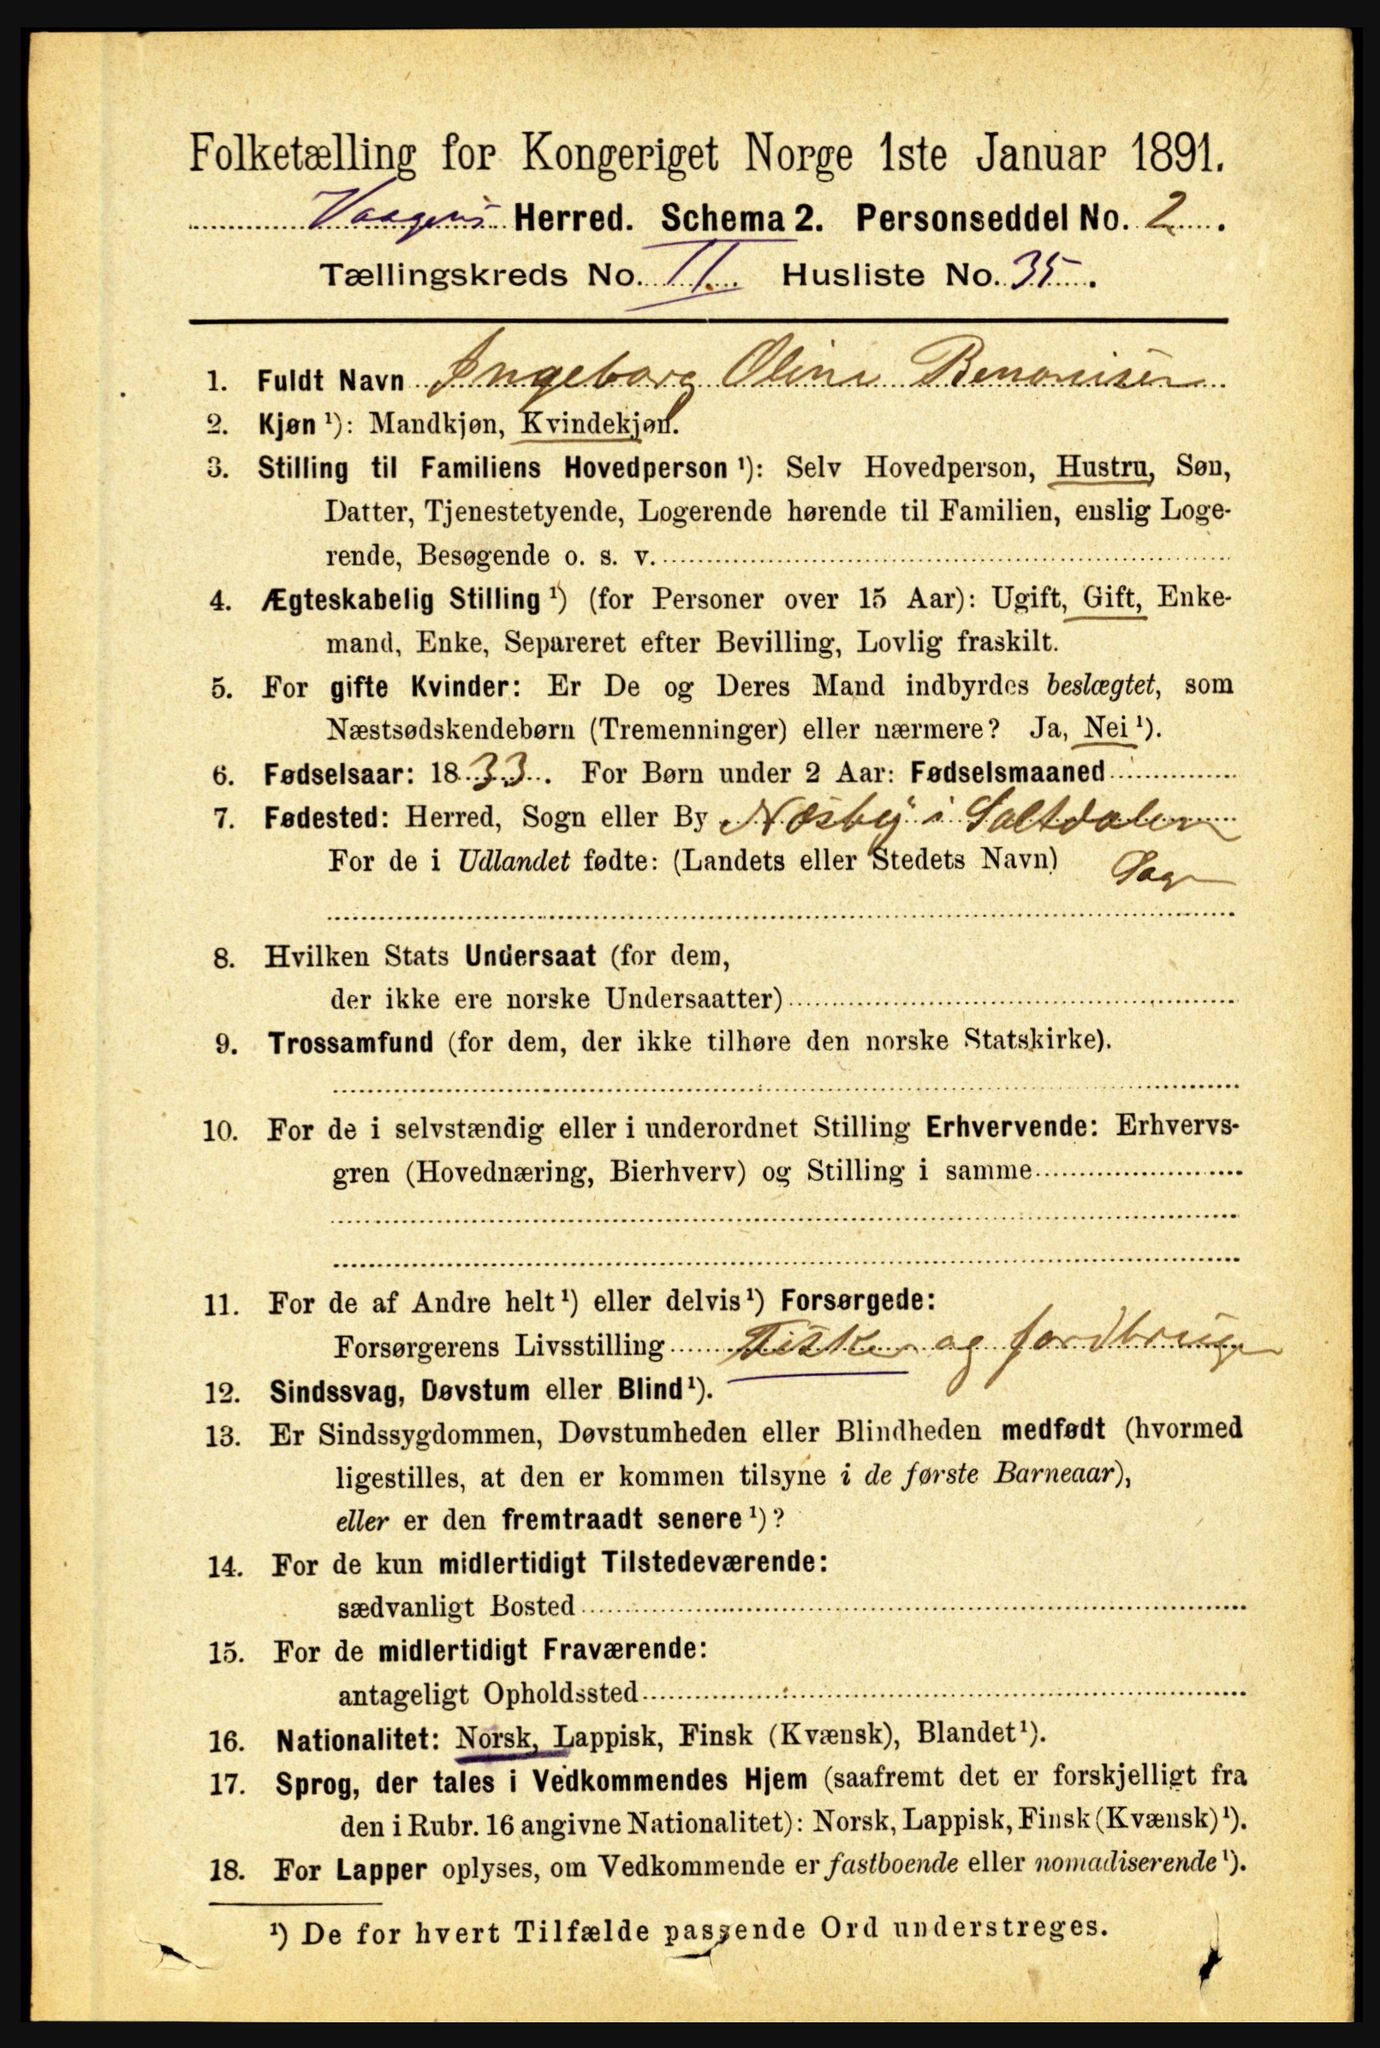 Folketælling for Kongeriget Norge 1ste Januar 1891.
Vaagens Herred. Schema 2. Personseddel No. 2.
Tællingskreds No. II. Husliste No. 35.
1. Fuldt Navn Ingeborg Oline Benonisen
2. Kjøn ¹): Mandkjøn, Kvindekjøn.
3. Stilling til Familiens Hovedperson ¹): Selv Hovedperson, Hustru, Søn,
Datter, Tjenestetyende, Logerende hørende til Familien, enslig Loge-
rende, Besøgende o. s. v.
4. Ægteskabelig Stilling ¹) (for Personer over 15 Aar): Ugift, Gift, Enke-
mand, Enke, Separeret efter Bevilling, Lovlig fraskilt.
5. For gifte Kvinder: Er De og Deres Mand indbyrdes beslægtet, som
Næstsødskendebørn (Tremenninger) eller nærmere? Ja, Nei ¹).
6. Fødselsaar: 1833. For Børn under 2 Aar: Fødselsmaaned
7. Fødested: Herred, Sogn eller By Næsby i Saltdalen
For de i Udlandet fødte: (Landets eller Stedets Navn)
8. Hvilken Stats Undersaat (for dem,
der ikke ere norske Undersaatter)
9. Trossamfund (for dem, der ikke tilhøre den norske Statskirke).
10. For de i selvstændig eller i underordnet Stilling Erhvervende: Erhvervs-
gren (Hovednæring, Bierhverv) og Stilling i samme
11. For de af Andre helt ¹) eller delvis ¹) Forsørgede:
Forsørgerens Livsstilling Fisker og jordbruger
12. Sindssvag, Døvstum eller Blind ¹).
13. Er Sindssygdommen, Døvstumheden eller Blindheden medfødt (hvormed
ligestilles, at den er kommen tilsyne i de første Barneaar),
eller er den fremtraadt senere ¹)?
14. For de kun midlertidigt Tilstedeværende:
sædvanligt Bosted
15. For de midlertidigt Fraværende:
antageligt Opholdssted
16. Nationalitet: Norsk, Lappisk, Finsk (Kvænsk), Blandet ¹).
17. Sprog, der tales i Vedkommendes Hjem (saafremt det er forskjelligt fra
den i Rubr. 16 angivne Nationalitet): Norsk, Lappisk, Finsk (Kvænsk) ¹).
18. For Lapper oplyses, om Vedkommende er fastboende eller nomadiserende ¹).
¹) De for hvert Tilfælde passende Ord understreges.